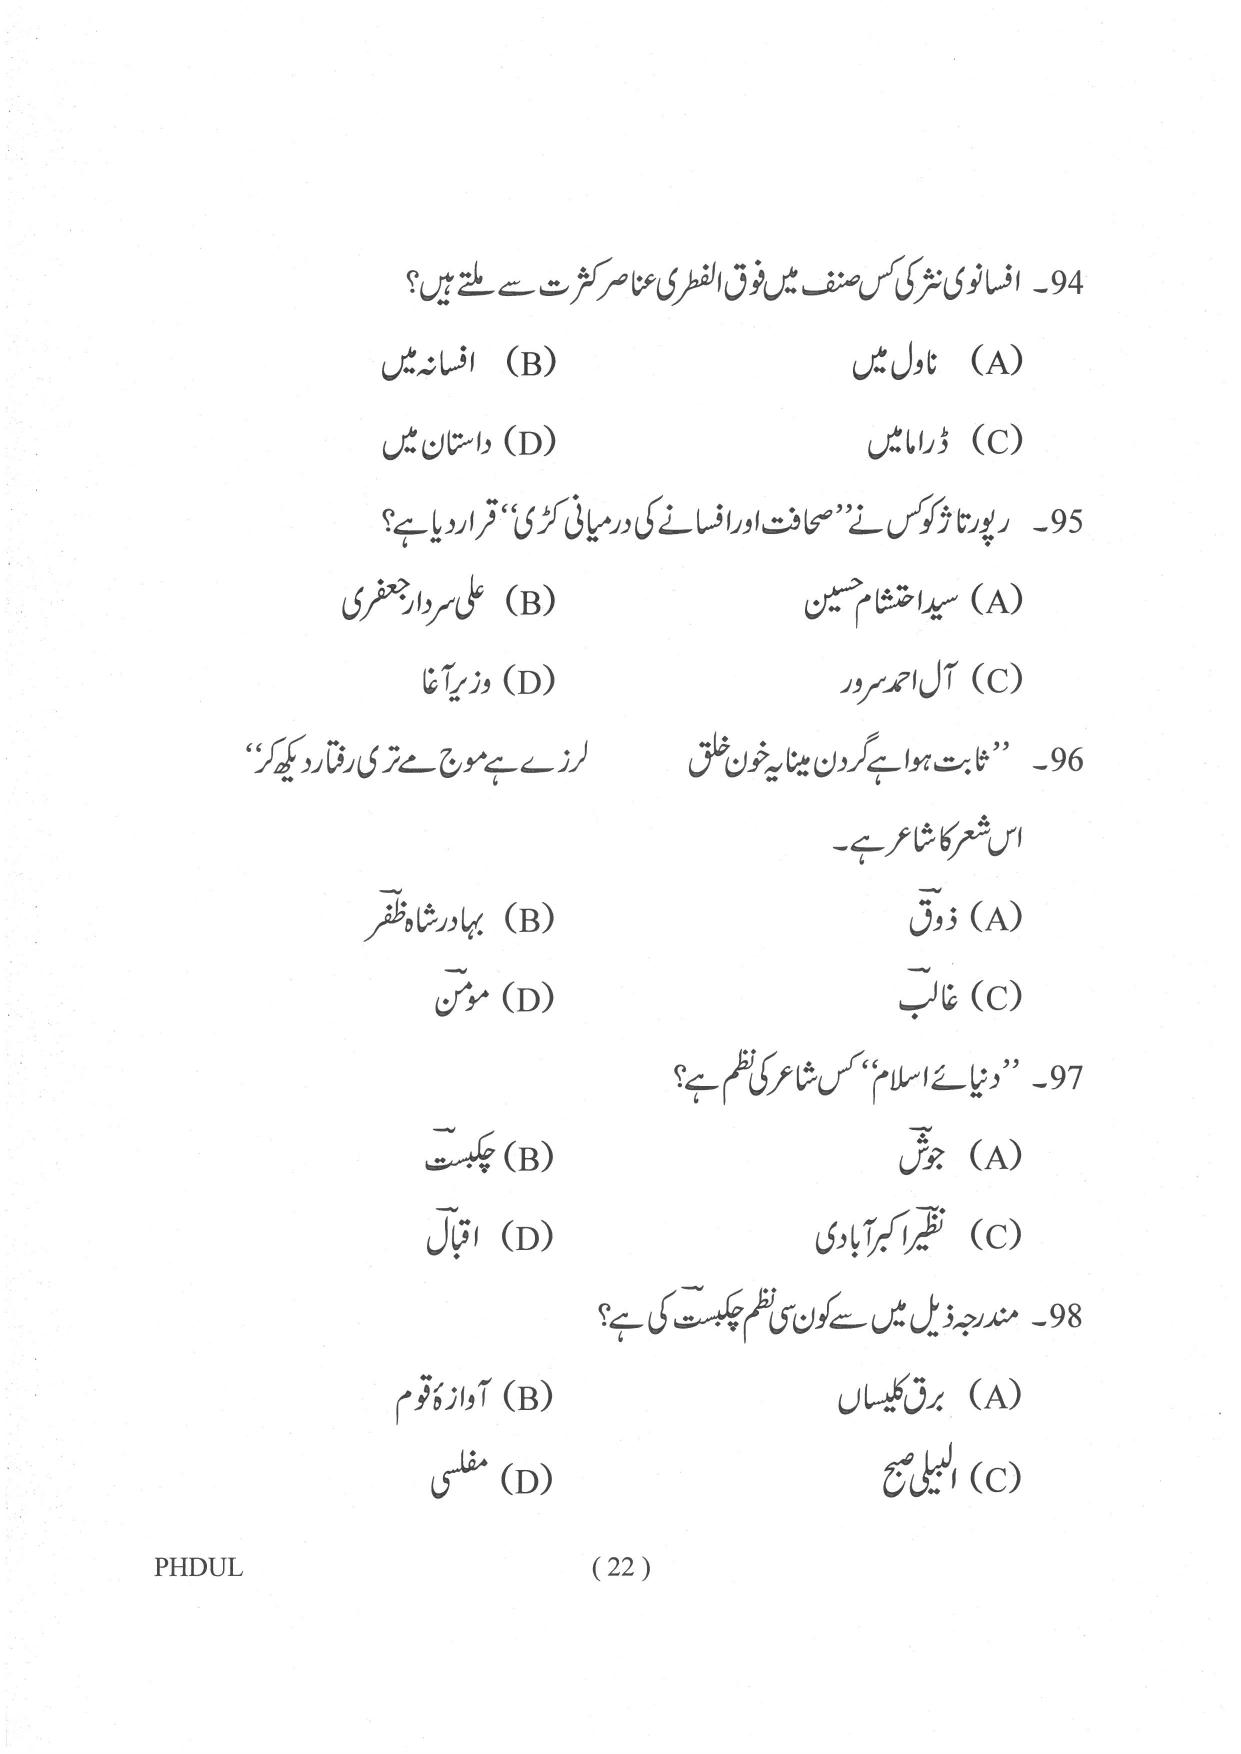 94۔ افسانوی نثر کی کس صنف میں فوق الفطری عناصر کثرت سے ملتے ہیں؟
(A) ناول میں (B) افسانہ میں
(C) ڈراما میں (D) داستان میں
95۔ رپورتاژ کو کس نے ’’صحافت اور افسانے کی درمیانی کڑی‘‘ قرار دیا ہے؟
(A) سید احتشام حسین (B) علی سردار جعفری
(C) آل احمد سرور (D) وزیر آغا
96۔ ’’ثابت ہوا ہے گردن مینا پہ خون خلق لرزے ہے موج مے تری رفتار دیکھ کر‘‘
اس شعر کا شاعر ہے۔
(A) ذوقؔ (B) بہادر شاہ ظفرؔ
(C) غالبؔ (D) مومنؔ
97۔ ’’دنیائے اسلام‘‘ کس شاعر کی نظم ہے؟
(A) جوشؔ (B) چکبستؔ
(C) نظیرؔ اکبر آبادی (D) اقبالؔ
98۔ مندرجہ ذیل میں سے کون سی نظم چکبستؔ کی ہے؟
(A) برق کلیساں (B) آوازۂ قوم
(C) البیلی صبح (D) مفلسی
PHDUL ( 22 )